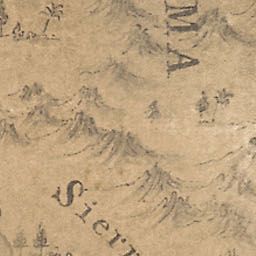 MA
Sierr